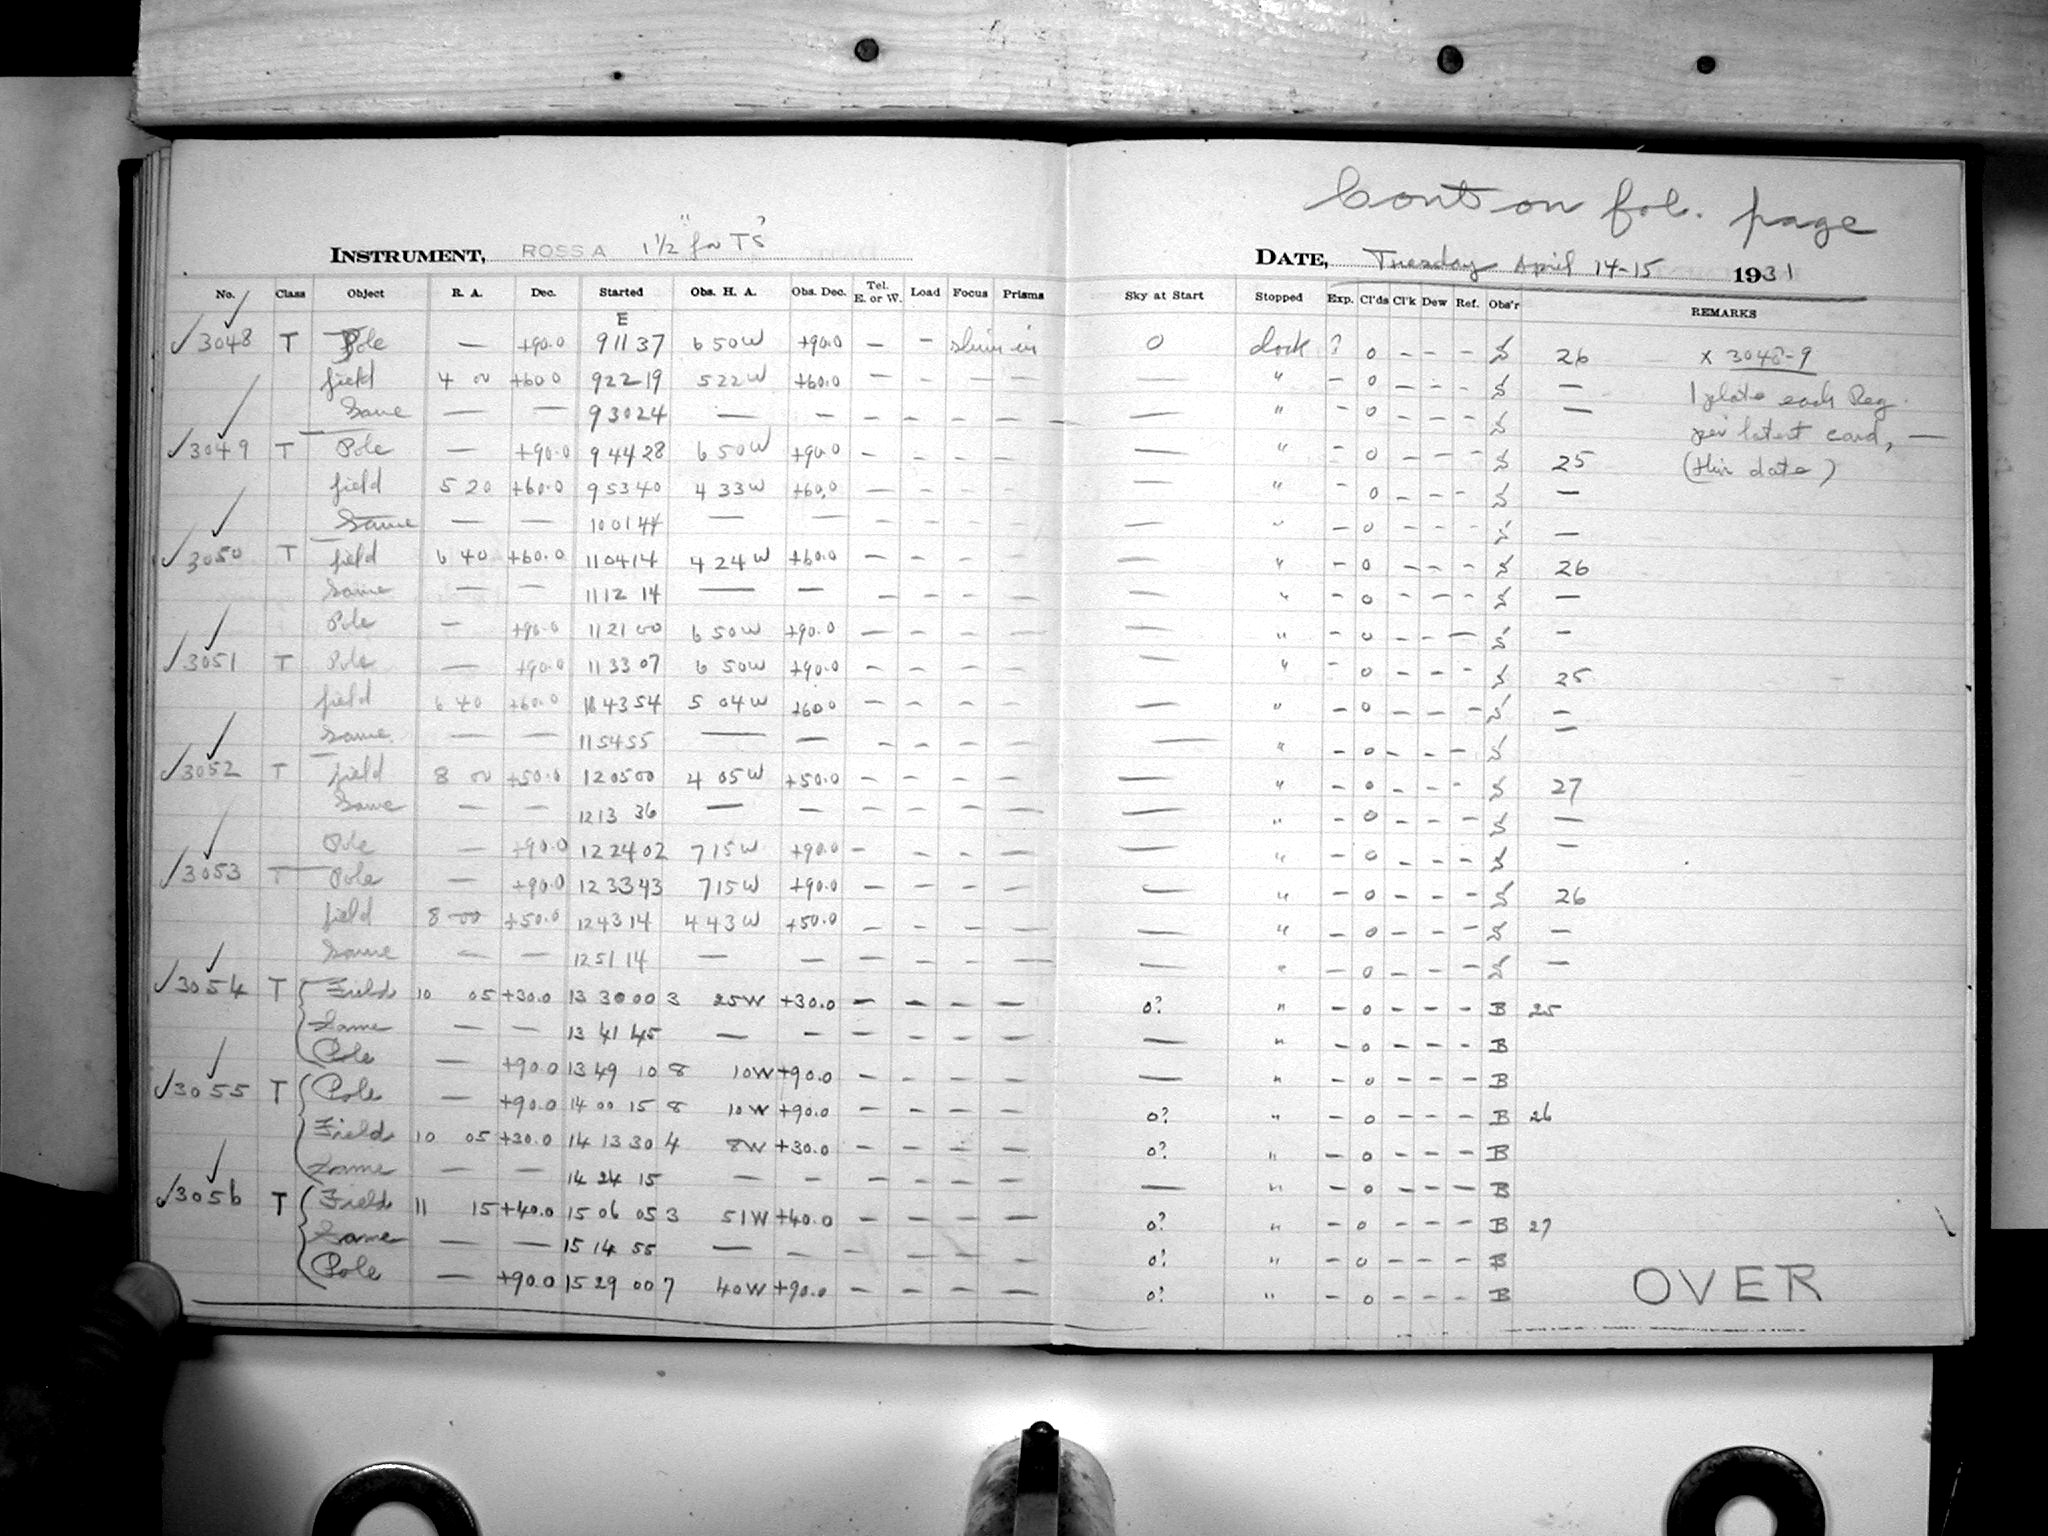 Cont on fol. page
INSTRUMENT, ROSS A 1 1/2" for TS
DATE, Tuesday April 14-15 1931
No. Class Object R. A. Dec. Started Obs. H. A. Obs. Dec. Tel. E. or W. Load Focus Prisms Sky at Start Stopped Exp. Cl'ds Cl'k Dew Ref. Obs'r REMARKS
E
✓3048 T Pole — +90.0 9 11 37 6 50W +90.0 — — in 0 clock ? 0 — — — S 26 x 3048-9
field 4 00 +60.0 9 22 19 5 22W +60.0 — — — — — " — 0 — — — S — 1 plate each Reg.
Same — — 9 30 24 — — — — — — — " — 0 — — — S — per latest card, —
✓3049 T Pole — +90.0 9 44 28 6 50W +90.0 — — — — — " — 0 — — — S 25 (this date)
field 5 20 +60.0 9 53 40 4 33W +60.0 — — — — — " — 0 — — — S —
Same — — 10 01 44 — — — — — — — " — 0 — — — S —
✓3050 T field 6 40 +60.0 11 04 14 4 24W +60.0 — — — — — " — 0 — — — S 26
Same — — 11 12 14 — — — — — — — " — 0 — — — S —
Pole — +90.0 11 21 00 6 50W +90.0 — — — — — " — 0 — — — S —
✓3051 T Pole — +90.0 11 33 07 6 50W +90.0 — — — — — " — 0 — — — S 25
field 6 40 +60.0 11 43 54 5 04W +60.0 — — — — — " — 0 — — — S —
Same — — 11 54 55 — — — — — — — " — 0 — — — S —
✓3052 T field 8 00 +50.0 12 05 00 4 05W +50.0 — — — — — " — 0 — — — S 27
Same — — 12 13 36 — — — — — — — " — 0 — — — S —
Pole — +90.0 12 24 02 7 15W +90.0 — — — — — " — 0 — — — S —
✓3053 T Pole — +90.0 12 33 43 7 15W +90.0 — — — — — " — 0 — — — S 26
field 8 00 +50.0 12 43 14 4 43W +50.0 — — — — — " — 0 — — — S —
Same — — 12 51 14 — — — — — — — " — 0 — — — S —
✓3054 T Field 10 05 +30.0 13 30 00 3 25W +30.0 — — — — 0? " — 0 — — — B 25
Same — — 13 41 45 — — — — — — — " — 0 — — — B
Pole — +90.0 13 49 10 8 10W +90.0 — — — — — " — 0 — — — B
✓3055 T Pole — +90.0 14 00 15 8 10W +90.0 — — — — 0? " — 0 — — — B 26
Field 10 05 +30.0 14 13 30 4 8W +30.0 — — — — 0? " — 0 — — — B
Same — — 14 24 15 — — — — — — — " — 0 — — — B
✓3056 T Field 11 15 +40.0 15 06 05 3 51W +40.0 — — — — 0? " — 0 — — — B 27
Same — — 15 14 55 — — — — — — 0? " — 0 — — — B
Pole — +90.0 15 29 00 7 40W +90.0 — — — — 0? " — 0 — — — B
OVER